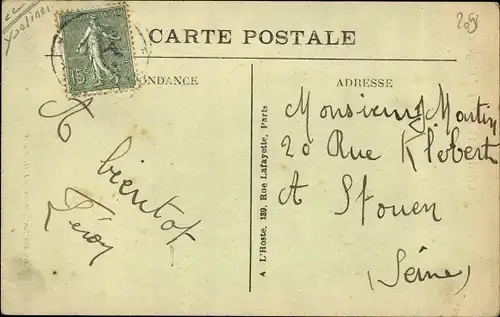 Yvelines
208
CARTE POSTALE
15
ONDANCE
ADRESSE
A bientot
Léon
A L'Hoste, 139, Rue Lafayette, Paris
Monsieur J Martin
20 Rue Klebert
A St ouen
(Seine)